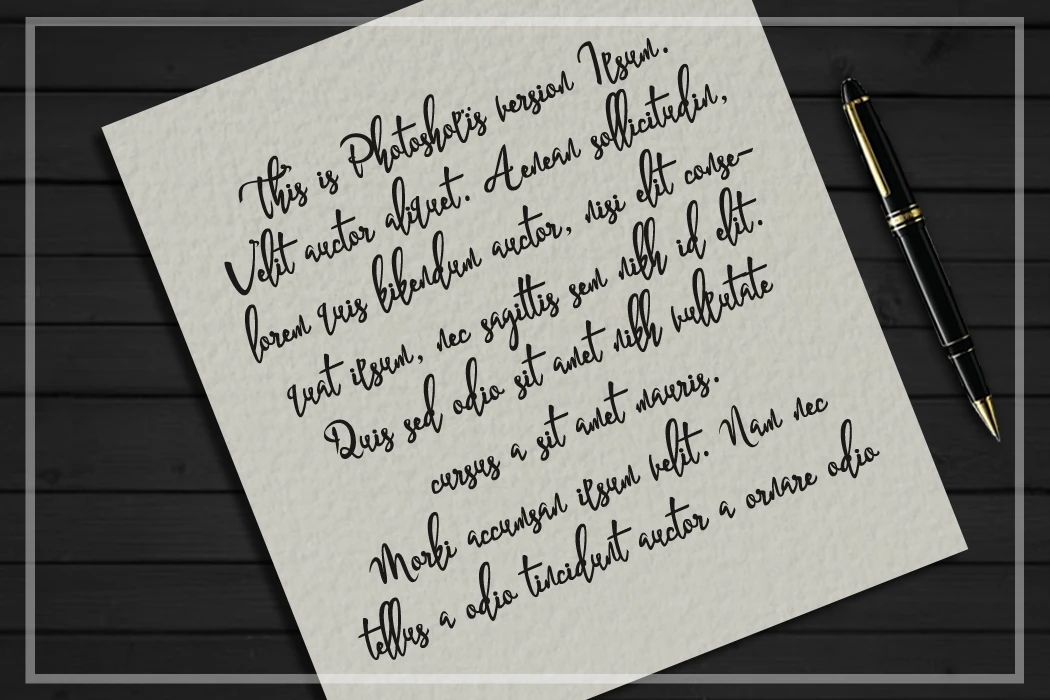 This is Photoshop's version Ipsum.
Velit auctor aliquet. Aenean sollicitudin,
lorem quis bibendum auctor, nisi elit conse-
quat ipsum, nec sagittis sem nibh id elit.
Duis sed odio sit amet nibh vulputate
cursus a sit amet mauris.
Morbi accumsan ipsum velit. Nam nec
tellus a odio tincidunt auctor a ornare odio